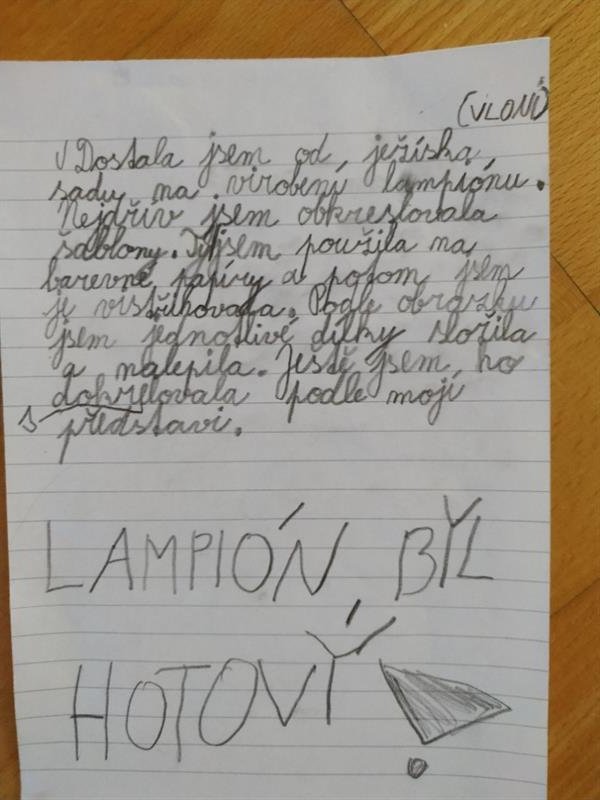 (VLONI)
V Dostala jsem od ježíška
sadu na virobení lampiónu.
Nejdřív jsem obkreslovala
šablony. Ti jsem použila na
barevné papíry a potom jsem
je vistřihovala. Podle obrázku
jsem jednotlivé dílky složila
a nalepila. Ještě jsem ho
dokrelovala podle moji
s představi.
LAMPIÓN BYL
HOTOVÝ!